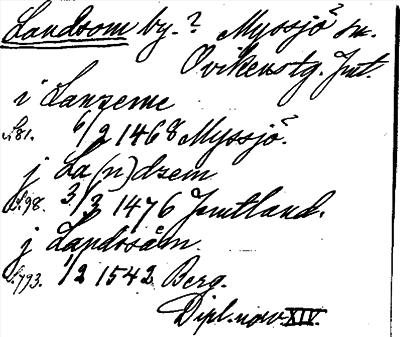 Landsom by.? Myssjö sn.
Ovikens tg. Jmt.
i Lanzeme
s. 81. 6/2 1468 Myssjö.
j La(n)dzem
s. 98. 3/3 1476 Jmtland.
j Landsåm.
s. 793. 1/2 1542 Berg.
Dipl. norv. XIV.